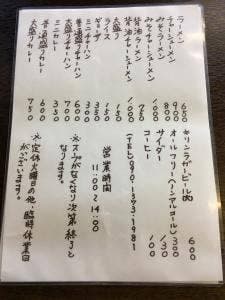 ラーメン 650
チャーシューメン 900
みそラーメン 800
みそチャーシューメン 1000
醤油ラーメン 750
醤油チャーシューメン 1000
大盛り 100
ライス
ギョーザ 300
ミニチャーハン 350
普通盛りチャーハン 600
大盛りチャーハン 700
ミニカレー 350
普通盛りカレー 600
大盛りカレー 750
キリンラガービール(中) 600
オールフリー(ノンアルコール) 300
サイダー 130
コーヒー 100
(TEL)090-1373-1981
営業時間
11:00~14:00
※スープがなくなり次第終りと
なります。
※定休火曜日の他、臨時休業日
がございます。